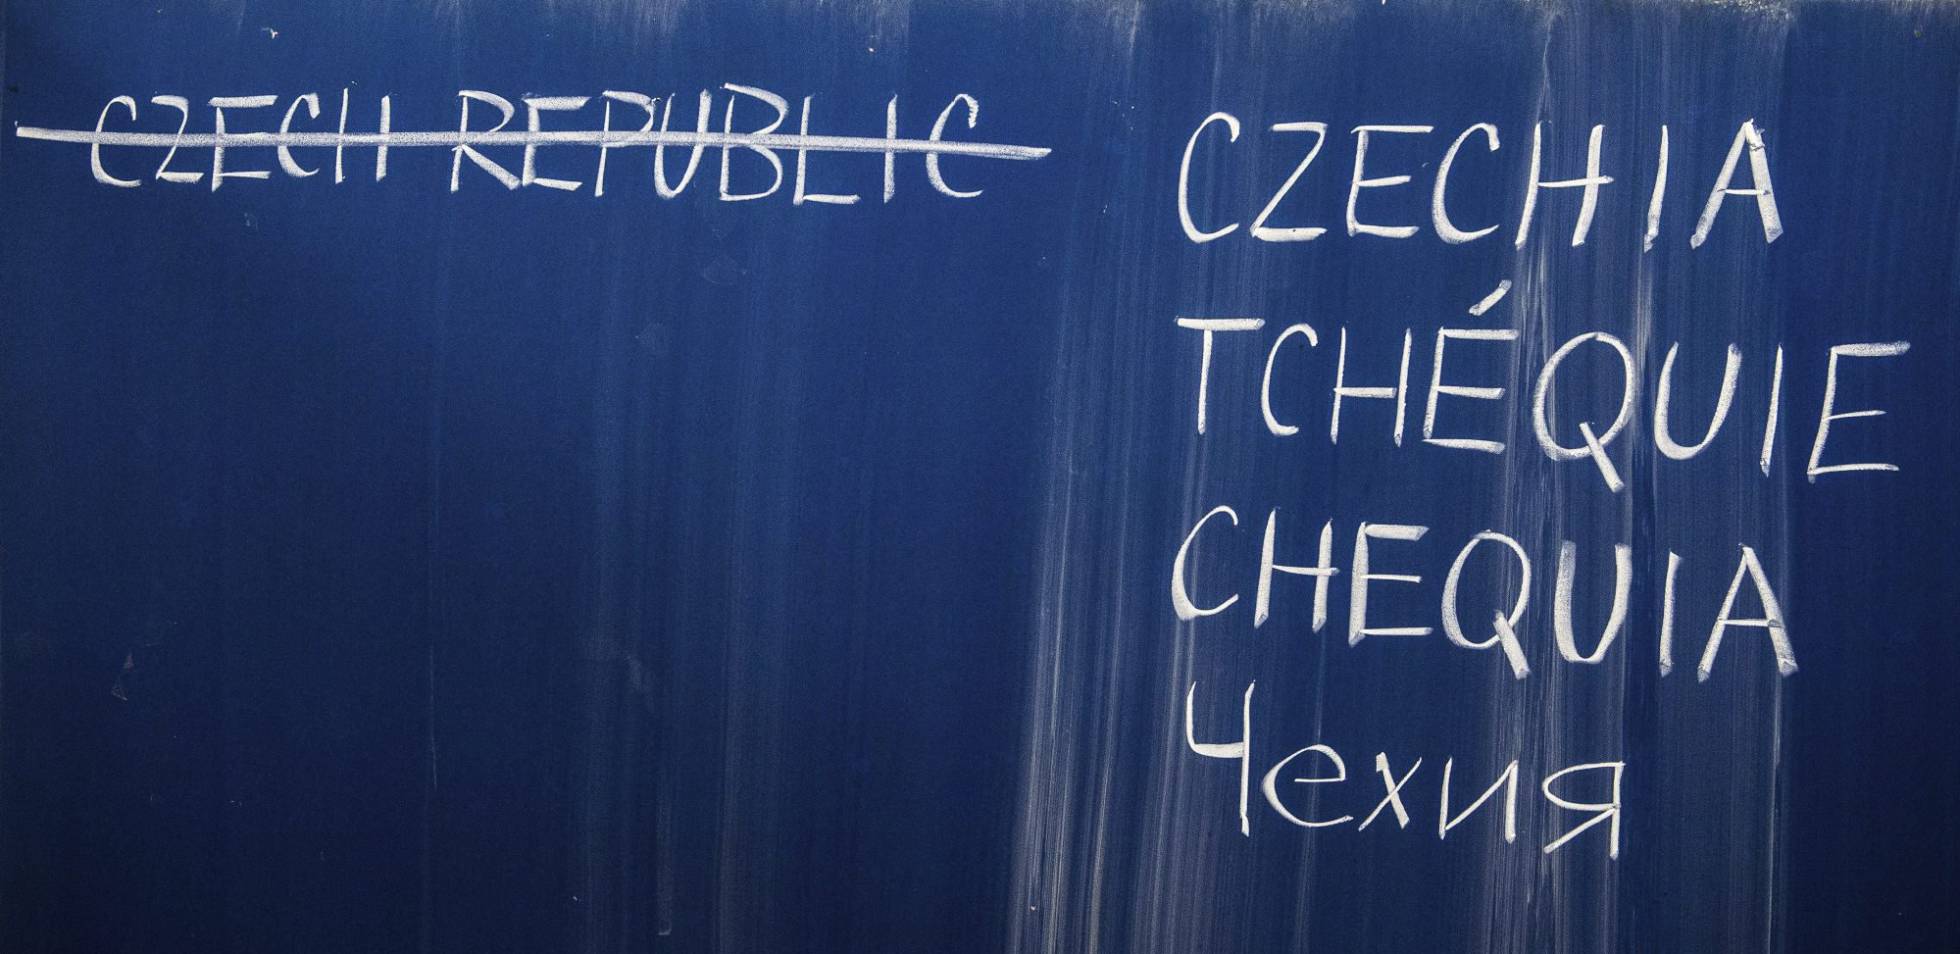 CZECH REPUBLIC
CZECHIA
TCHÉQUIE
CHEQUIA
Чехия